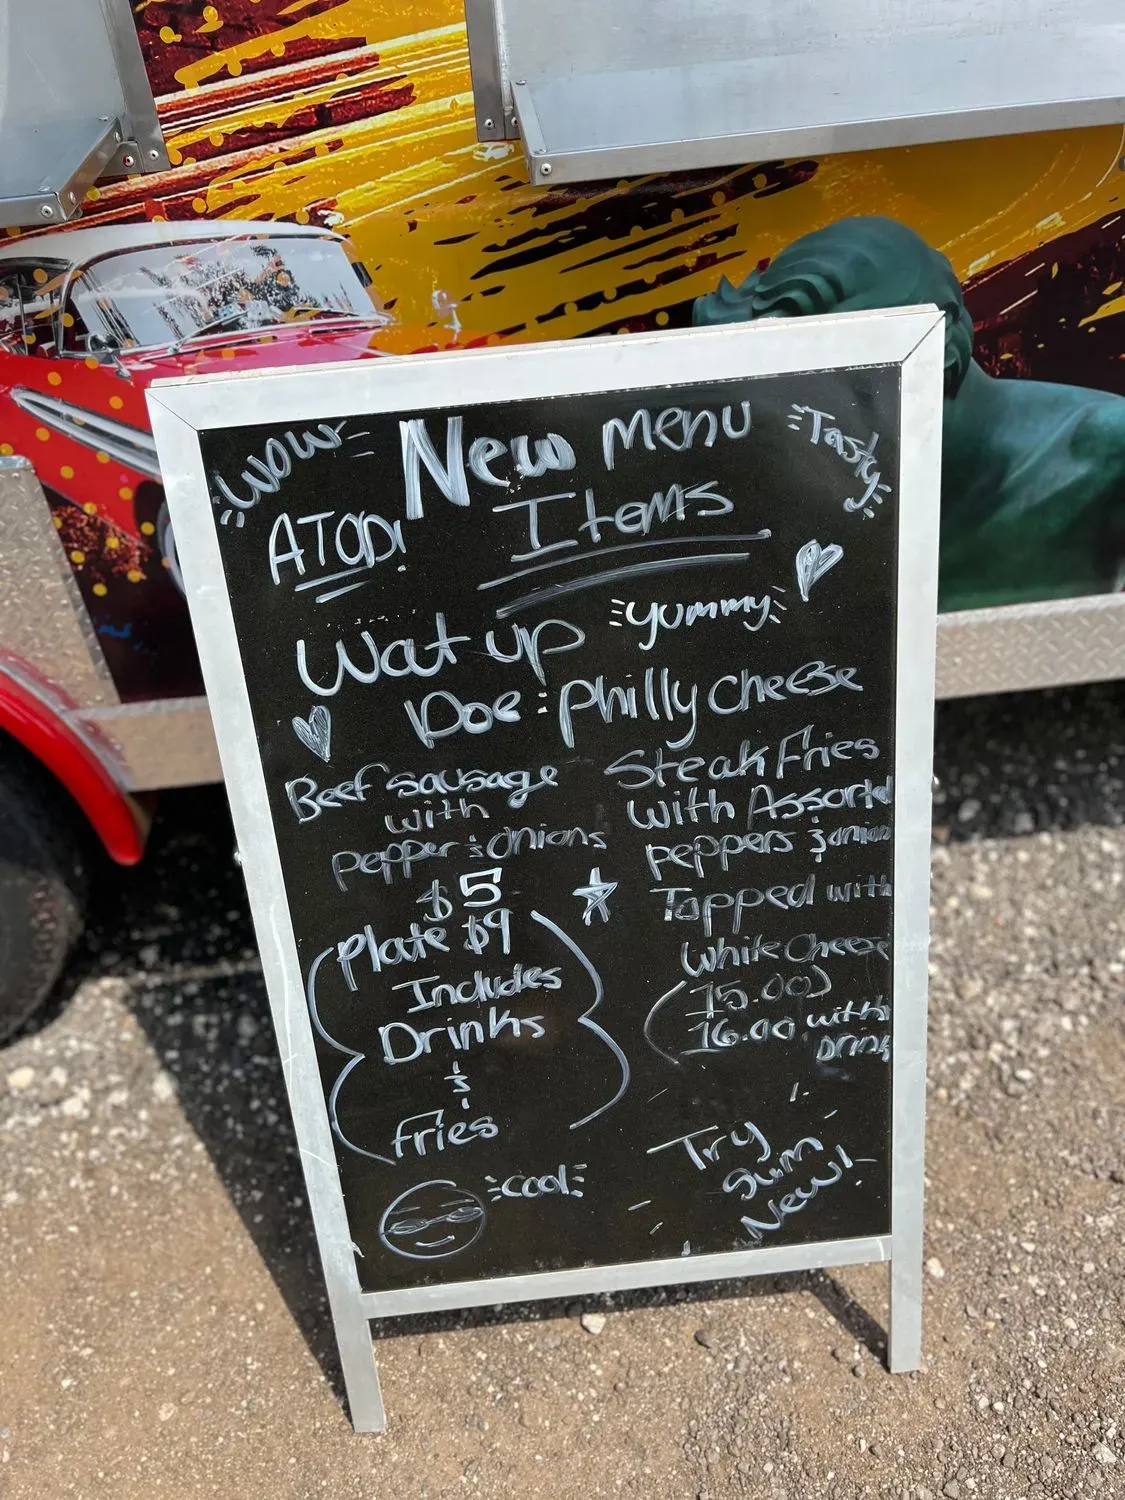 wow
New menu
Tasty
ATOD!
Items
Wat up
yummy
Doe: Philly cheese
Steak Fries
with Assorted
peppers & onion
Topped with
White Cheese
(15.00)
16.00 with
Drink
Beef sausage
with
pepper & onions
$5
Plate $9
Includes
Drinks
&
Fries
cool
Try
Sum
New!